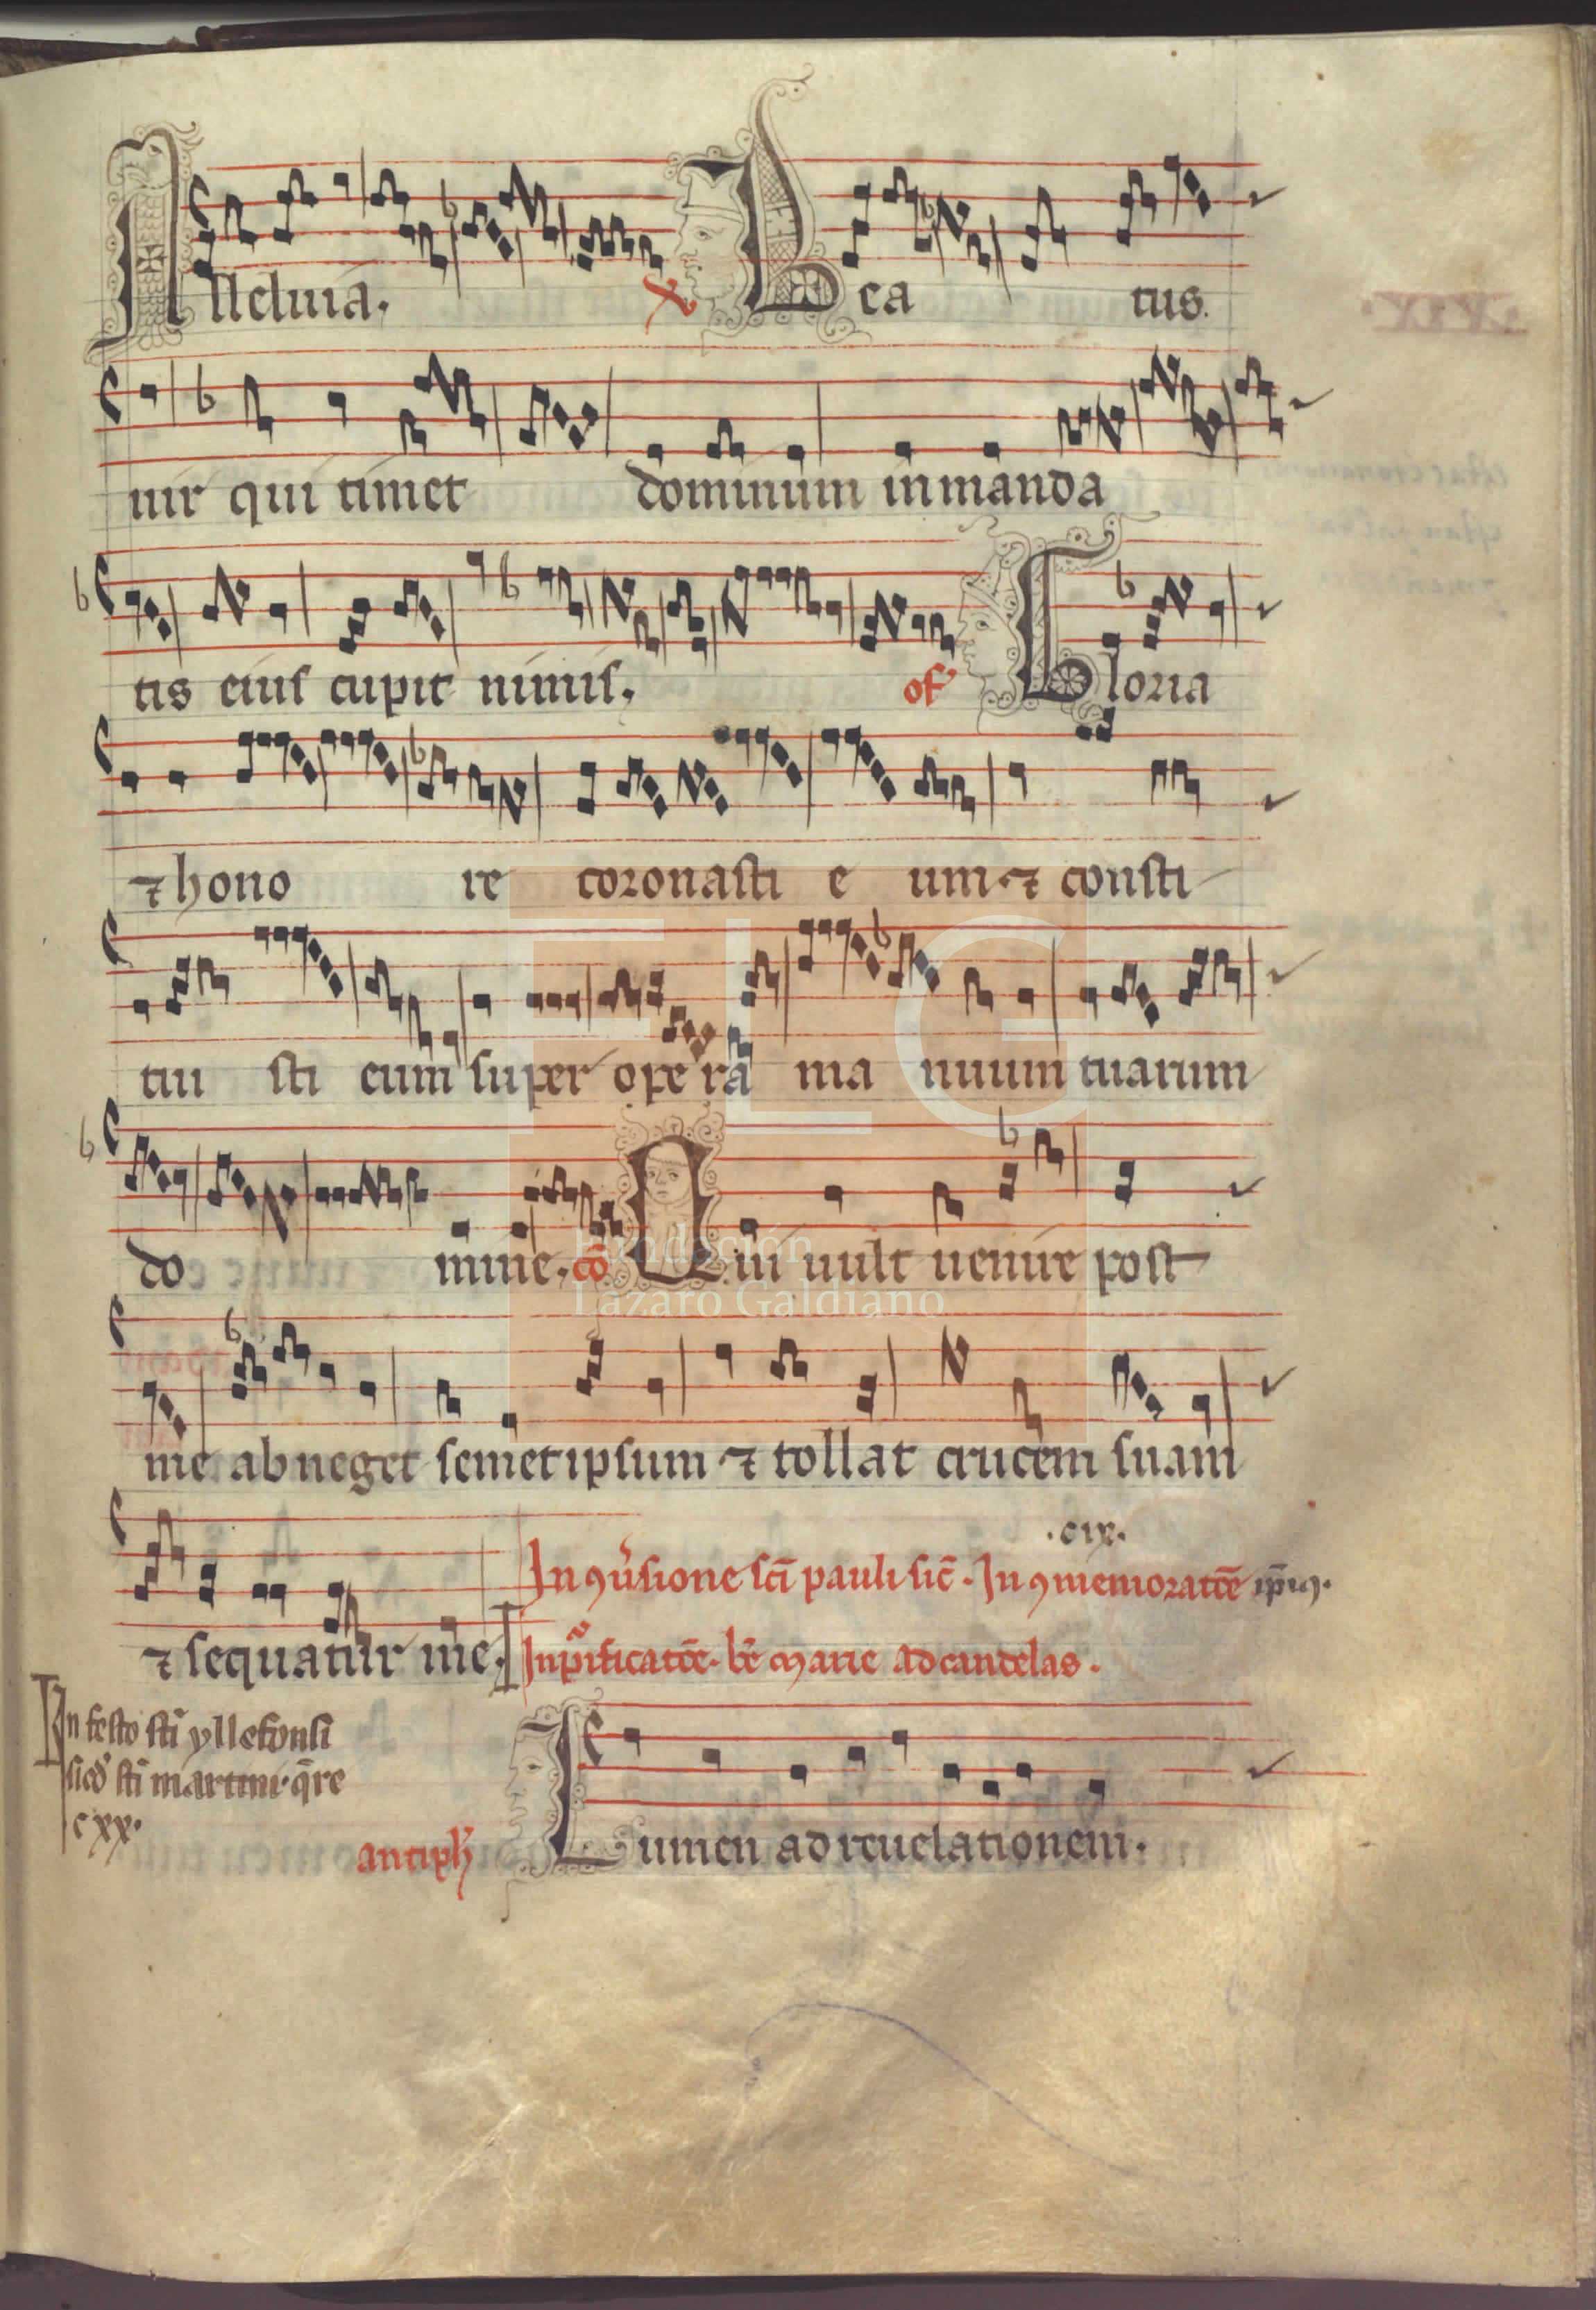 Alleluia. ℣ Bea tus
uir qui timet dominum in manda
tis eius cupit nimis. of Gloria
⁊ hono re coronasti e um ⁊ consti
tui sti eum super opera ma nuum tuarum
do mine. cō Qui uult uenire post
me abneget semetipsum ⁊ tollat crucem suam
.cix.
In ꝯūsione sc̄i pauli sic̄. In ꝯmemoratōe ip̄iꝰ.
⁊ sequatur me. In pͥificatōe. bē marie ad candelas.
In festo sc̄i yllefonsi
sc̄i martini. q̄re
cxx.
antiph̄ Lumen ad reuelationem.
FLG
Fundación
Lázaro Galdiano